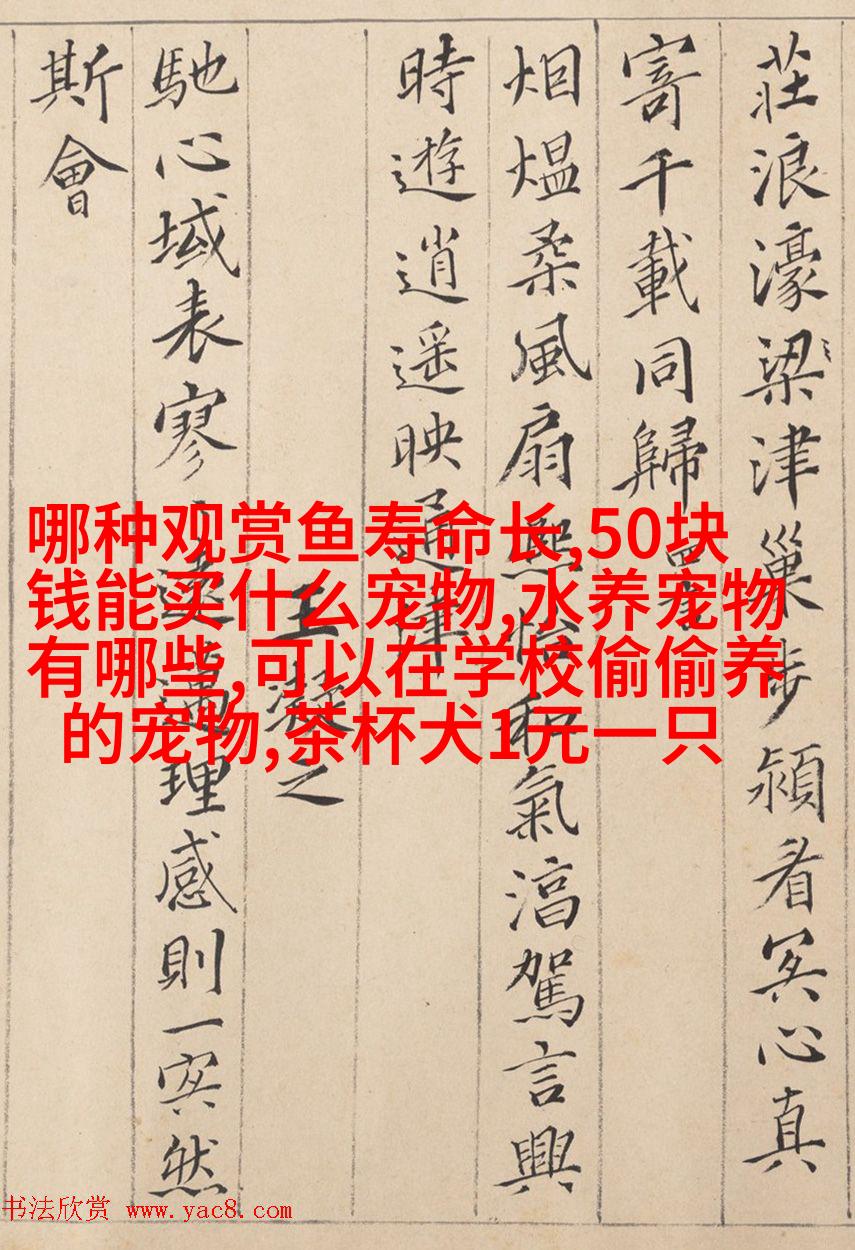 莊浪濠梁津巢步潁冥心真
寄千載同歸
烟熅柔風扇熙怡和氣淳駕言興
時遊逍遥映通津
王凝之
馳心域表寥遠邁理感則一冥然
斯會
哪种观赏鱼寿命长,50块
钱能买什么宠物,水养宠物
有哪些,可以在学校偷偷养
的宠物,茶杯犬1元一只
书法欣赏 www.yac8.com